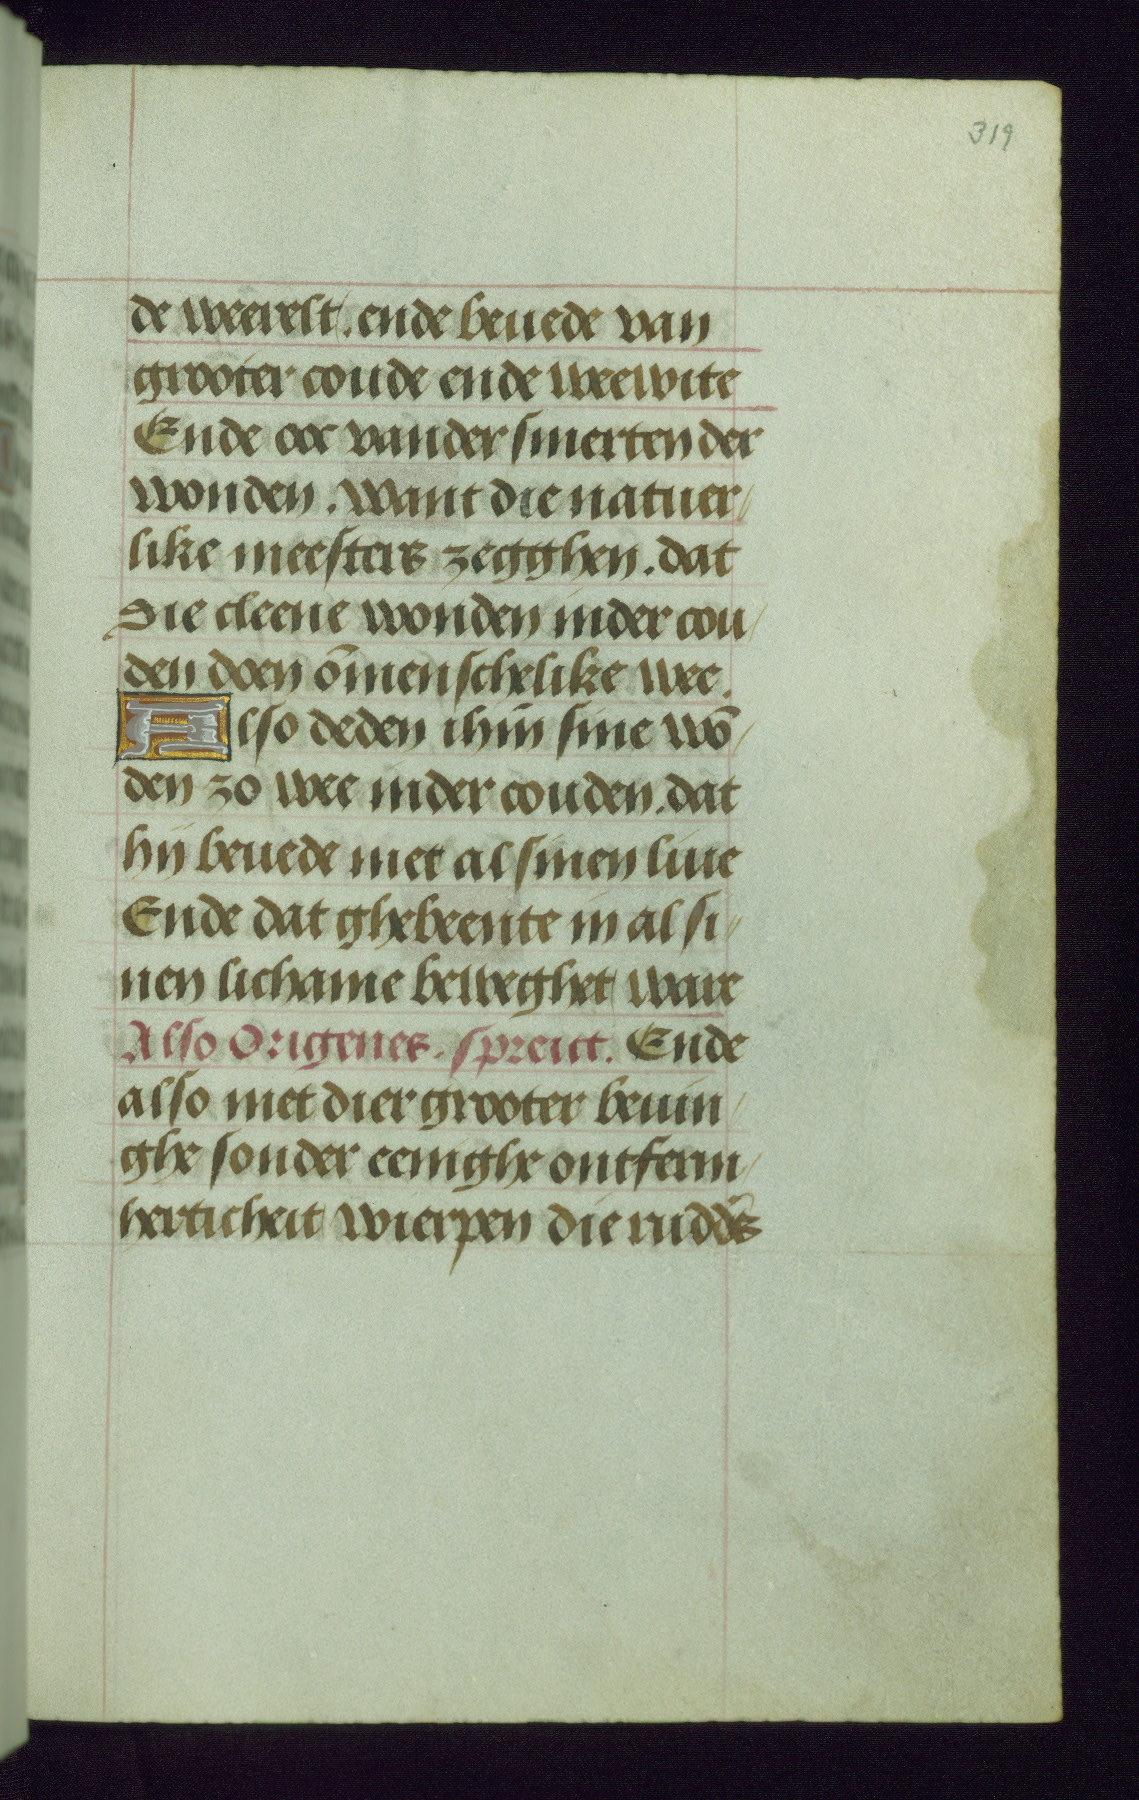 319
de weerelt. ende beuede van
grooter coude ende weewite
Ende ooc vander smerten der
wonden. Want die natuer/
like meesters zegghen. dat
Die cleene wonden inder cou/
den doen ōmenschelike wee.
Also deden ihūi sine wō/
den zo wee inder couden. dat
hij beuede met al sinen liue
Ende dat ghebeente in al si/
nen lichame beweghet ware
Also Origenes. spreict. Ende
also met dier grooter beuin/
ghe sonder eenighe ontferm/
herticheit wierpen die rudd̄s